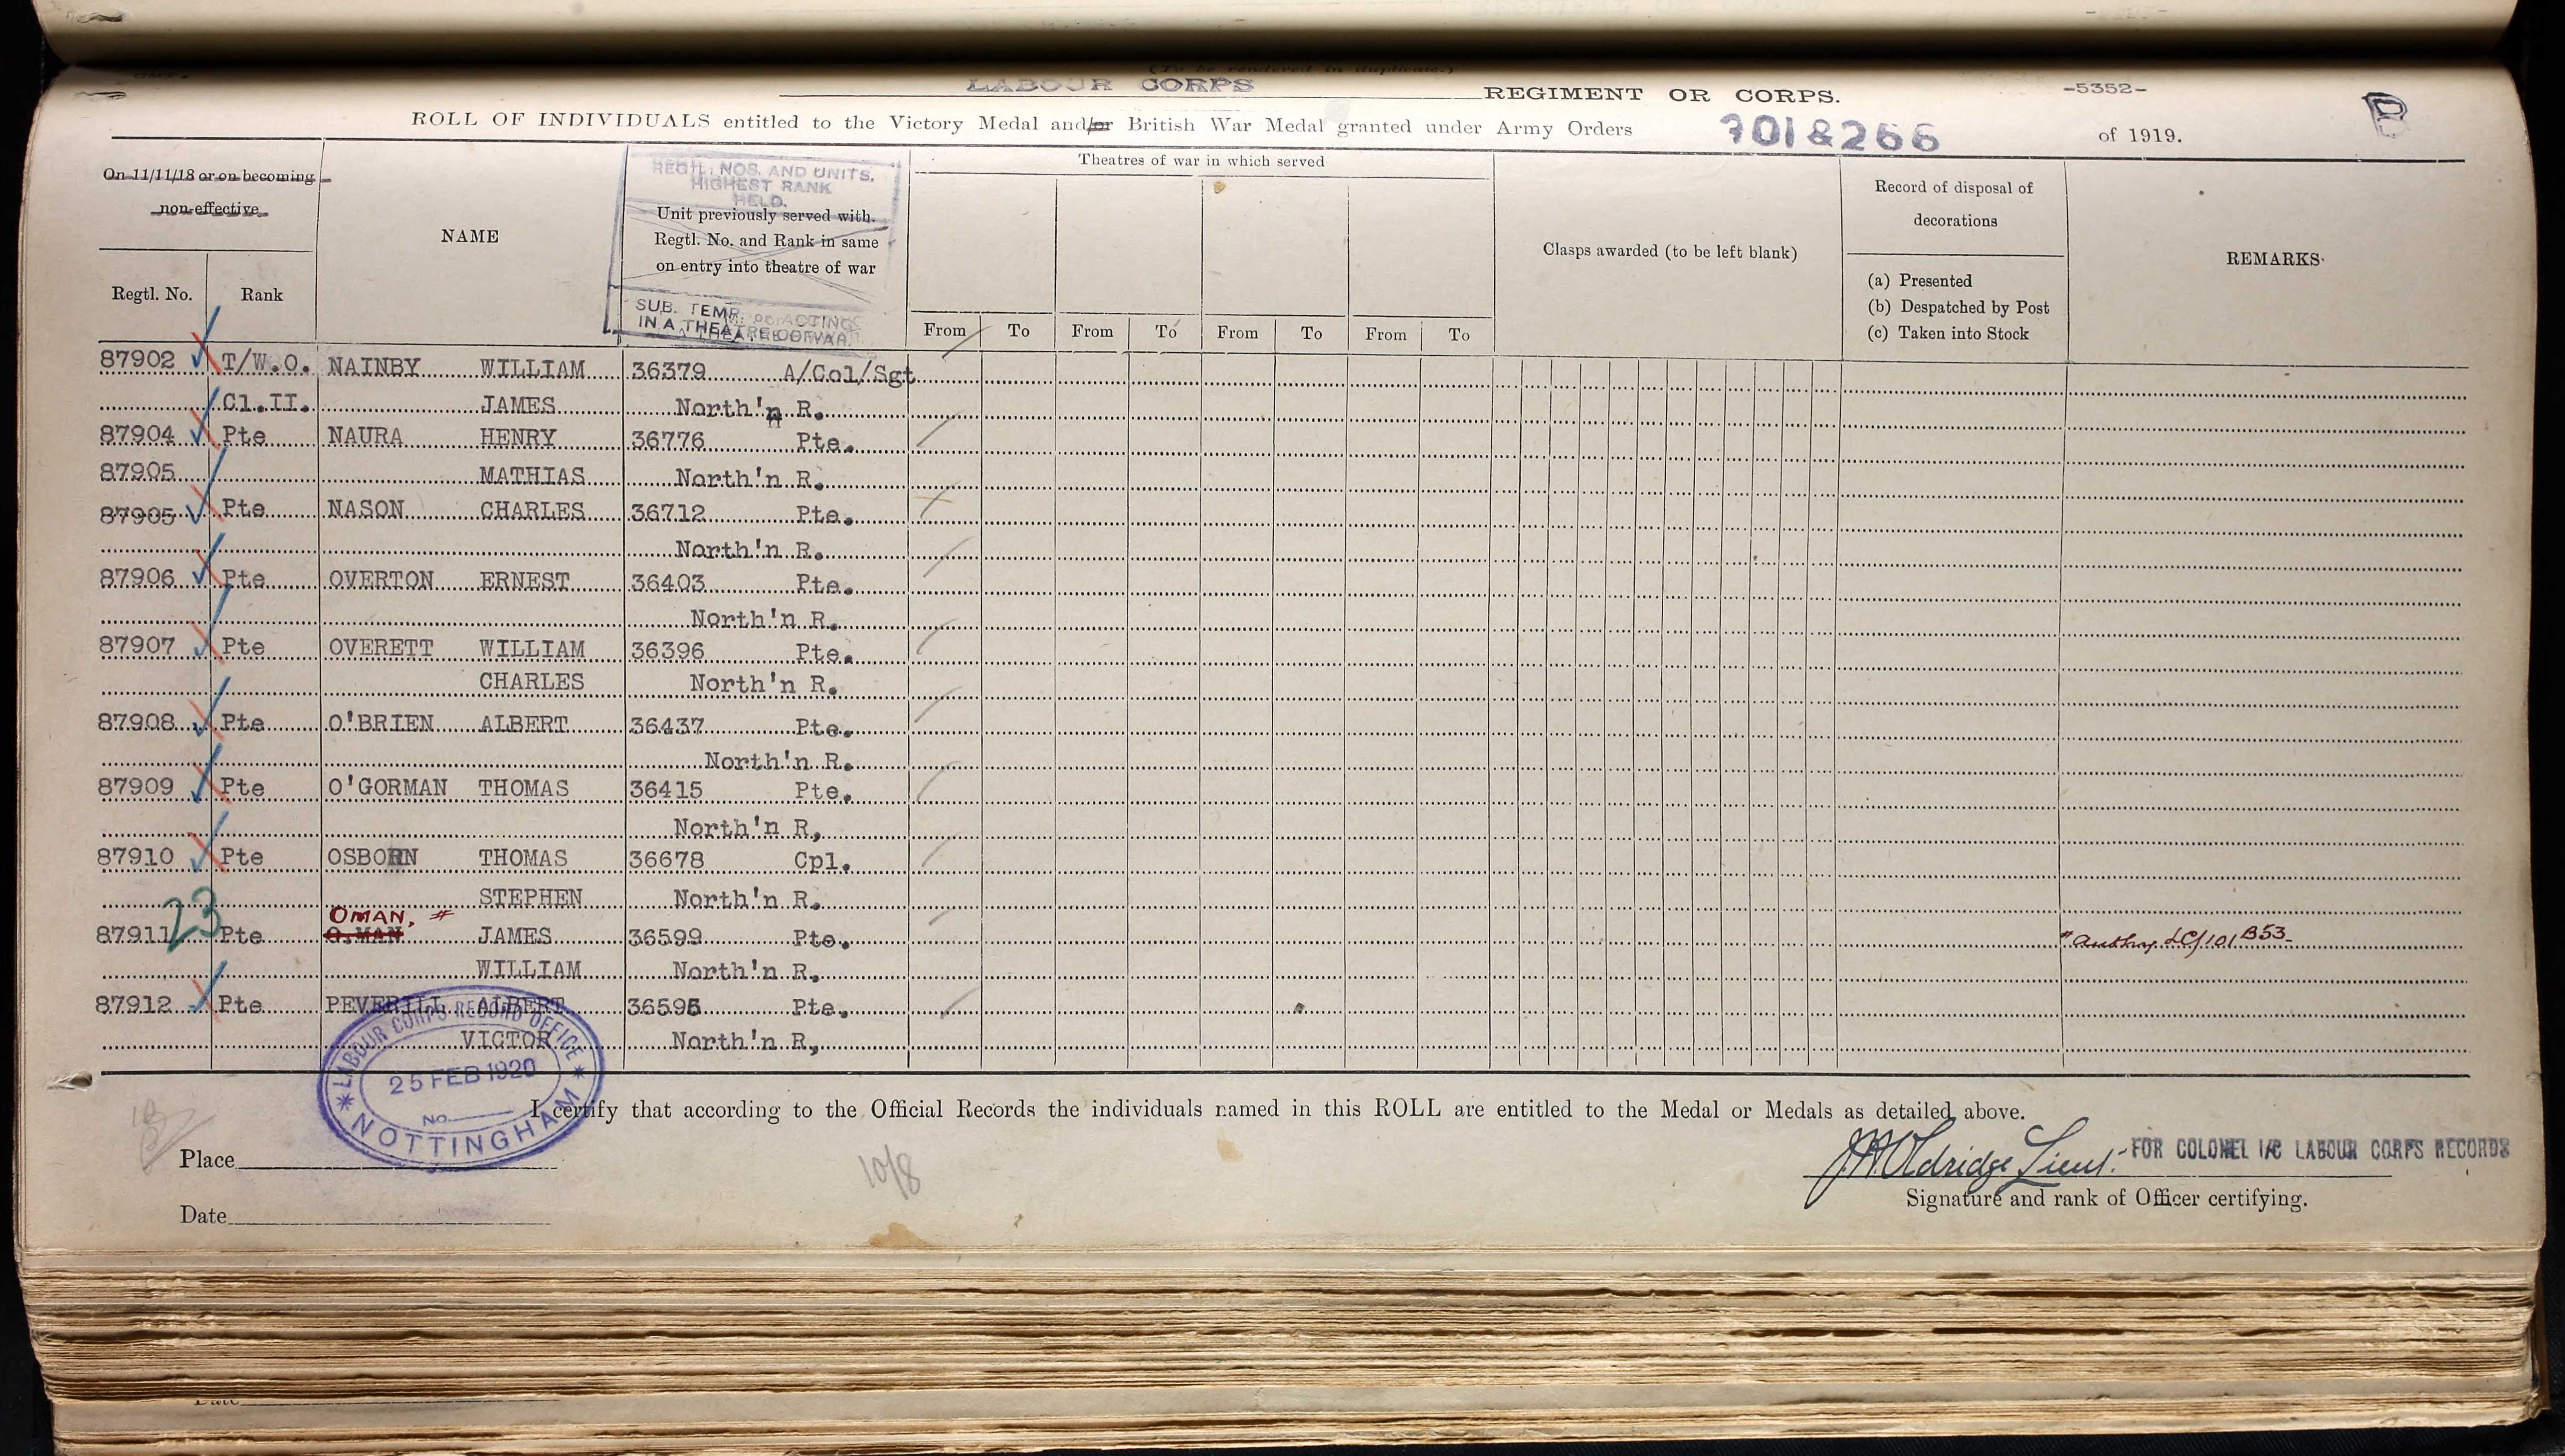 (To be rendered in duplicate.)
LABOUR CORPS REGIMENT OR CORPS. -5352-
ROLL OF INDIVIDUALS entitled to the Victory Medal and/or British War Medal granted under Army Orders 301 & 266 of 1919.
On 11/11/18 or on becoming non-effective
Regtl. No. Rank
NAME
REGTL: NOS. AND UNITS,
HIGHEST RANK
HELD.
Unit previously served with.
Regtl. No. and Rank in same
on entry into theatre of war
SUB. TEMP.
IN A THEATRE OF WAR
Theatres of war in which served
From To From To From To From To
Clasps awarded (to be left blank)
Record of disposal of
decorations
(a) Presented
(b) Despatched by Post
(c) Taken into Stock
REMARKS
87902 T/W.O. NAINBY WILLIAM 36379 A/Col/Sgt
Cl.II. JAMES North'n R.
87904 Pte NAURA HENRY 36776 Pte.
87905 MATHIAS North'n R.
87905 Pte NASON CHARLES 36712 Pte.
North'n R.
87906 Pte OVERTON ERNEST 36403 Pte.
North'n R.
87907 Pte OVERETT WILLIAM 36396 Pte.
CHARLES North'n R.
87908 Pte O'BRIEN ALBERT 36437 Pte.
North'n R.
87909 Pte O'GORMAN THOMAS 36415 Pte.
North'n R,
87910 Pte OSBORN THOMAS 36678 Cpl.
STEPHEN North'n R.
23 OMAN, #
87911 Pte O.MAN JAMES 36599 Pte. # Authy. LC/101 B53
WILLIAM North'n R,
87912 Pte PEVERILL ALBERT 36595 Pte.
VICTOR North'n R,
LABOUR CORPS RECORD OFFICE
25 FEB 1920
No.
NOTTINGHAM
I certify that according to the Official Records the individuals named in this ROLL are entitled to the Medal or Medals as detailed above.
Place
10/8
Oldridge Lieut. FOR COLONEL I/C LABOUR CORPS RECORDS
Signature and rank of Officer certifying.
Date
Date